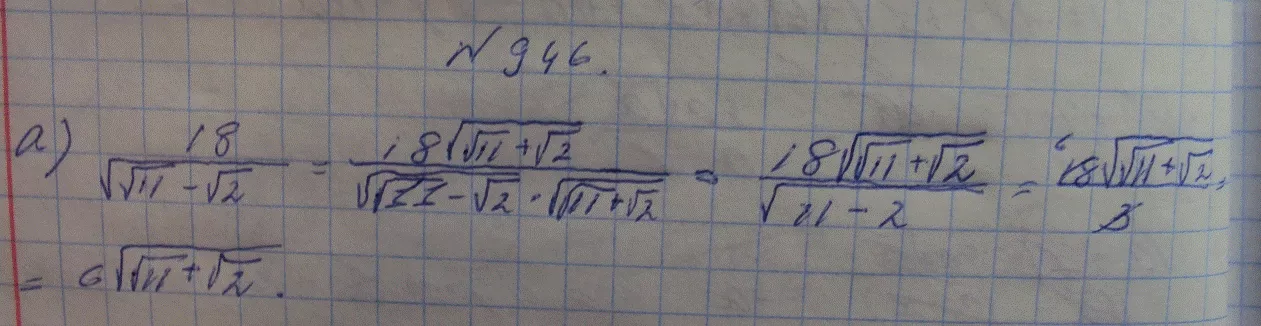 № 946.
а) 18/√(√11 - √2) = 18√(√11 + √2)/(√(√11 - √2) · √(√11 + √2)) = 18√(√11 + √2)/√(11 - 2) = 6 18√(√11 + √2)/3 =
= 6√(√11 + √2).